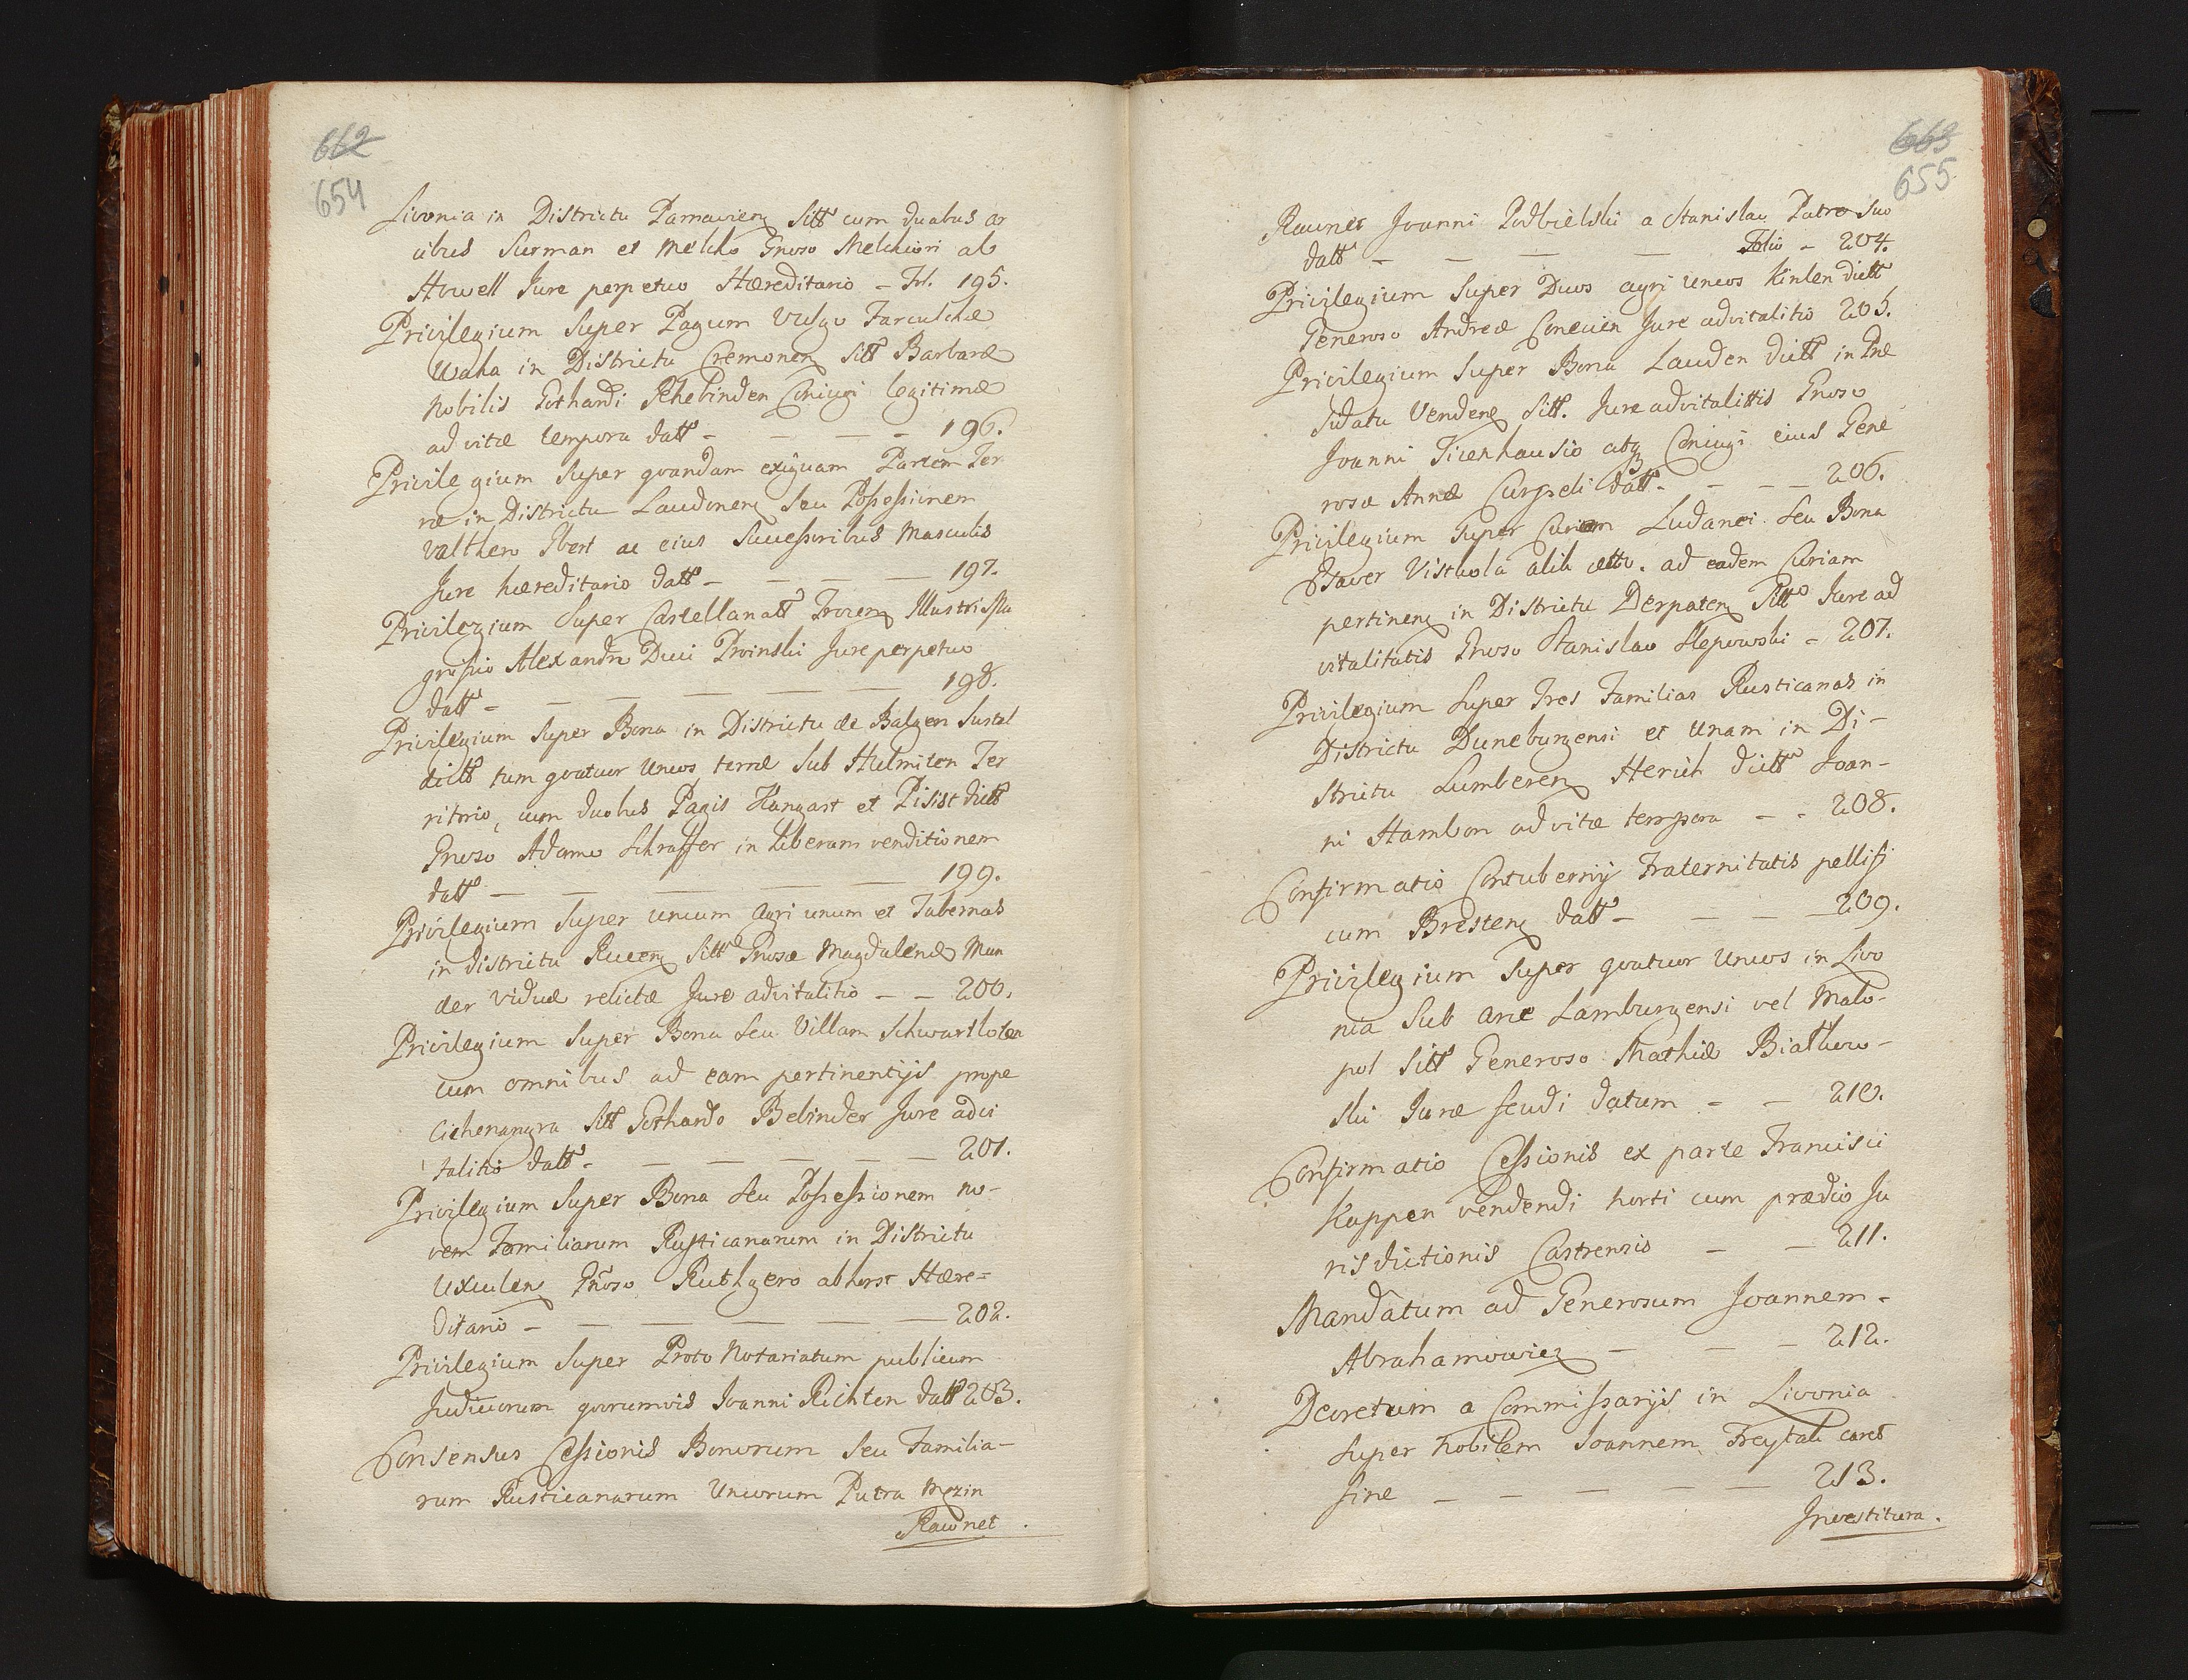 662
654
Livonia in Districtu Parnavien Sitt cum duabus ar
cibus Surman et Melcko Gnoso Melchiori ab
Howell Jure perpetuo Hæreditario - Fol. 195.
Privilegium Super Pagum Vulgo Farculche
Waha in Districtu Cremonen Sitt Barbaræ
Nobilis Gothardi Rhebinden Coniugi legitimæ
ad vitæ tempora datt - - - 196.
Privilegium Super quandam exiguam Partem Ter
ræ in Districtu Laudonen Seu Possessionem
Valthero Ibert ac eius Successoribus Masculis
Jure hæreditario datt - - - - 197.
Privilegium Super Castellanatt Trocen Illustri Ma
gnifico Alexandro Duci Proinski Jure perpetuo
datt - - - - - - 198.
Privilegium Super Bona in Districtu de Balgen Surtel
dictt tum quatuor Uncos terræ Sub Helmiten Ter
ritorio, cum duobus Pagis Hangast et Pisist dictt
Gnoso Adamo Schraffer in liberam venditionem
datt - - - - - 199.
Privilegium Super uncum Agri unum et Tabernas
in districtu Rucen Sitt Gnosæ Magdalenæ Mun
der viduæ relictæ Jure advitalitio - - 200.
Privilegium Super Bona Seu Villam Schwartholen
cum omnibus ad eam pertinentijs prope
Cichenangra Sitt Gothardo Bebinder Jure advi
talitio datt - - - - - 201.
Privilegium Super Bona Seu Possessionem no-
vem Familiarum Rusticanarum in Districtu
Uxculen Gnoso Ruthgero ab horst Hære=
ditario - - - - - - 202.
Privilegium Super Proto Notariatum publicum
Judiciorum quorumvis Joanni Richten datt 203.
Consensus Cessionis Bonorum Seu Familia-
rum Rusticanarum Uncorum Putra Mezin
Rawnet.
663
655
Rawnet Joanni Podbielski a Stanislao Patre Suo
datt - - - - Folio - 204.
Privilegium Super Duos agri Uncos Kinlen dictt
Generoso Andreæ Conecien Jure advitalitio 205.
Privilegium Super Bona Lauden dictt in Præ
sidatu Venden Sitt. Jure advitalittis Gnoso
Joanni Ticenhausio atq Coniugi eius Gene
rosæ Annæ Curpseli datt - - - - 206.
Privilegium Super Curiam Ludanei Seu Bona
Isaver Vistuola ad eadem Curiam
pertinen in Districtu Derpaten Sitt Jure ad
vitalitatis Gnoso Stanislao Slepowski - 207.
Privilegium Super Tres Familias Rusticanas in
Districtu Duneburgensi et Unam in Di-
strictu Lumberen Herich dictt Joan-
ni Hambon ad vitæ tempora - - 208.
Confirmatio Contubernij Fraternitatis pellifi
cum Bresten datt - - - - 209.
Privilegium Super quatuor Uncos in Livo
nia Sub arce Lamburgensi vel Malo-
pol Sitt Generoso Mathiæ Biallow-
ski Juræ feudi datum - - 210.
Confirmatio Cessionis ex parte Francisci
Kuppen vendendi horti cum prædio Ju
risdictionis Castrensis - - 211.
Mandatum ad Generosum Joannem -
Abrahamowicz - - - 212.
Decretum a Commissarijs in Livonia
Super Nobilem Joannem Freytah caret
fine - - - - - 213.
Investitura.